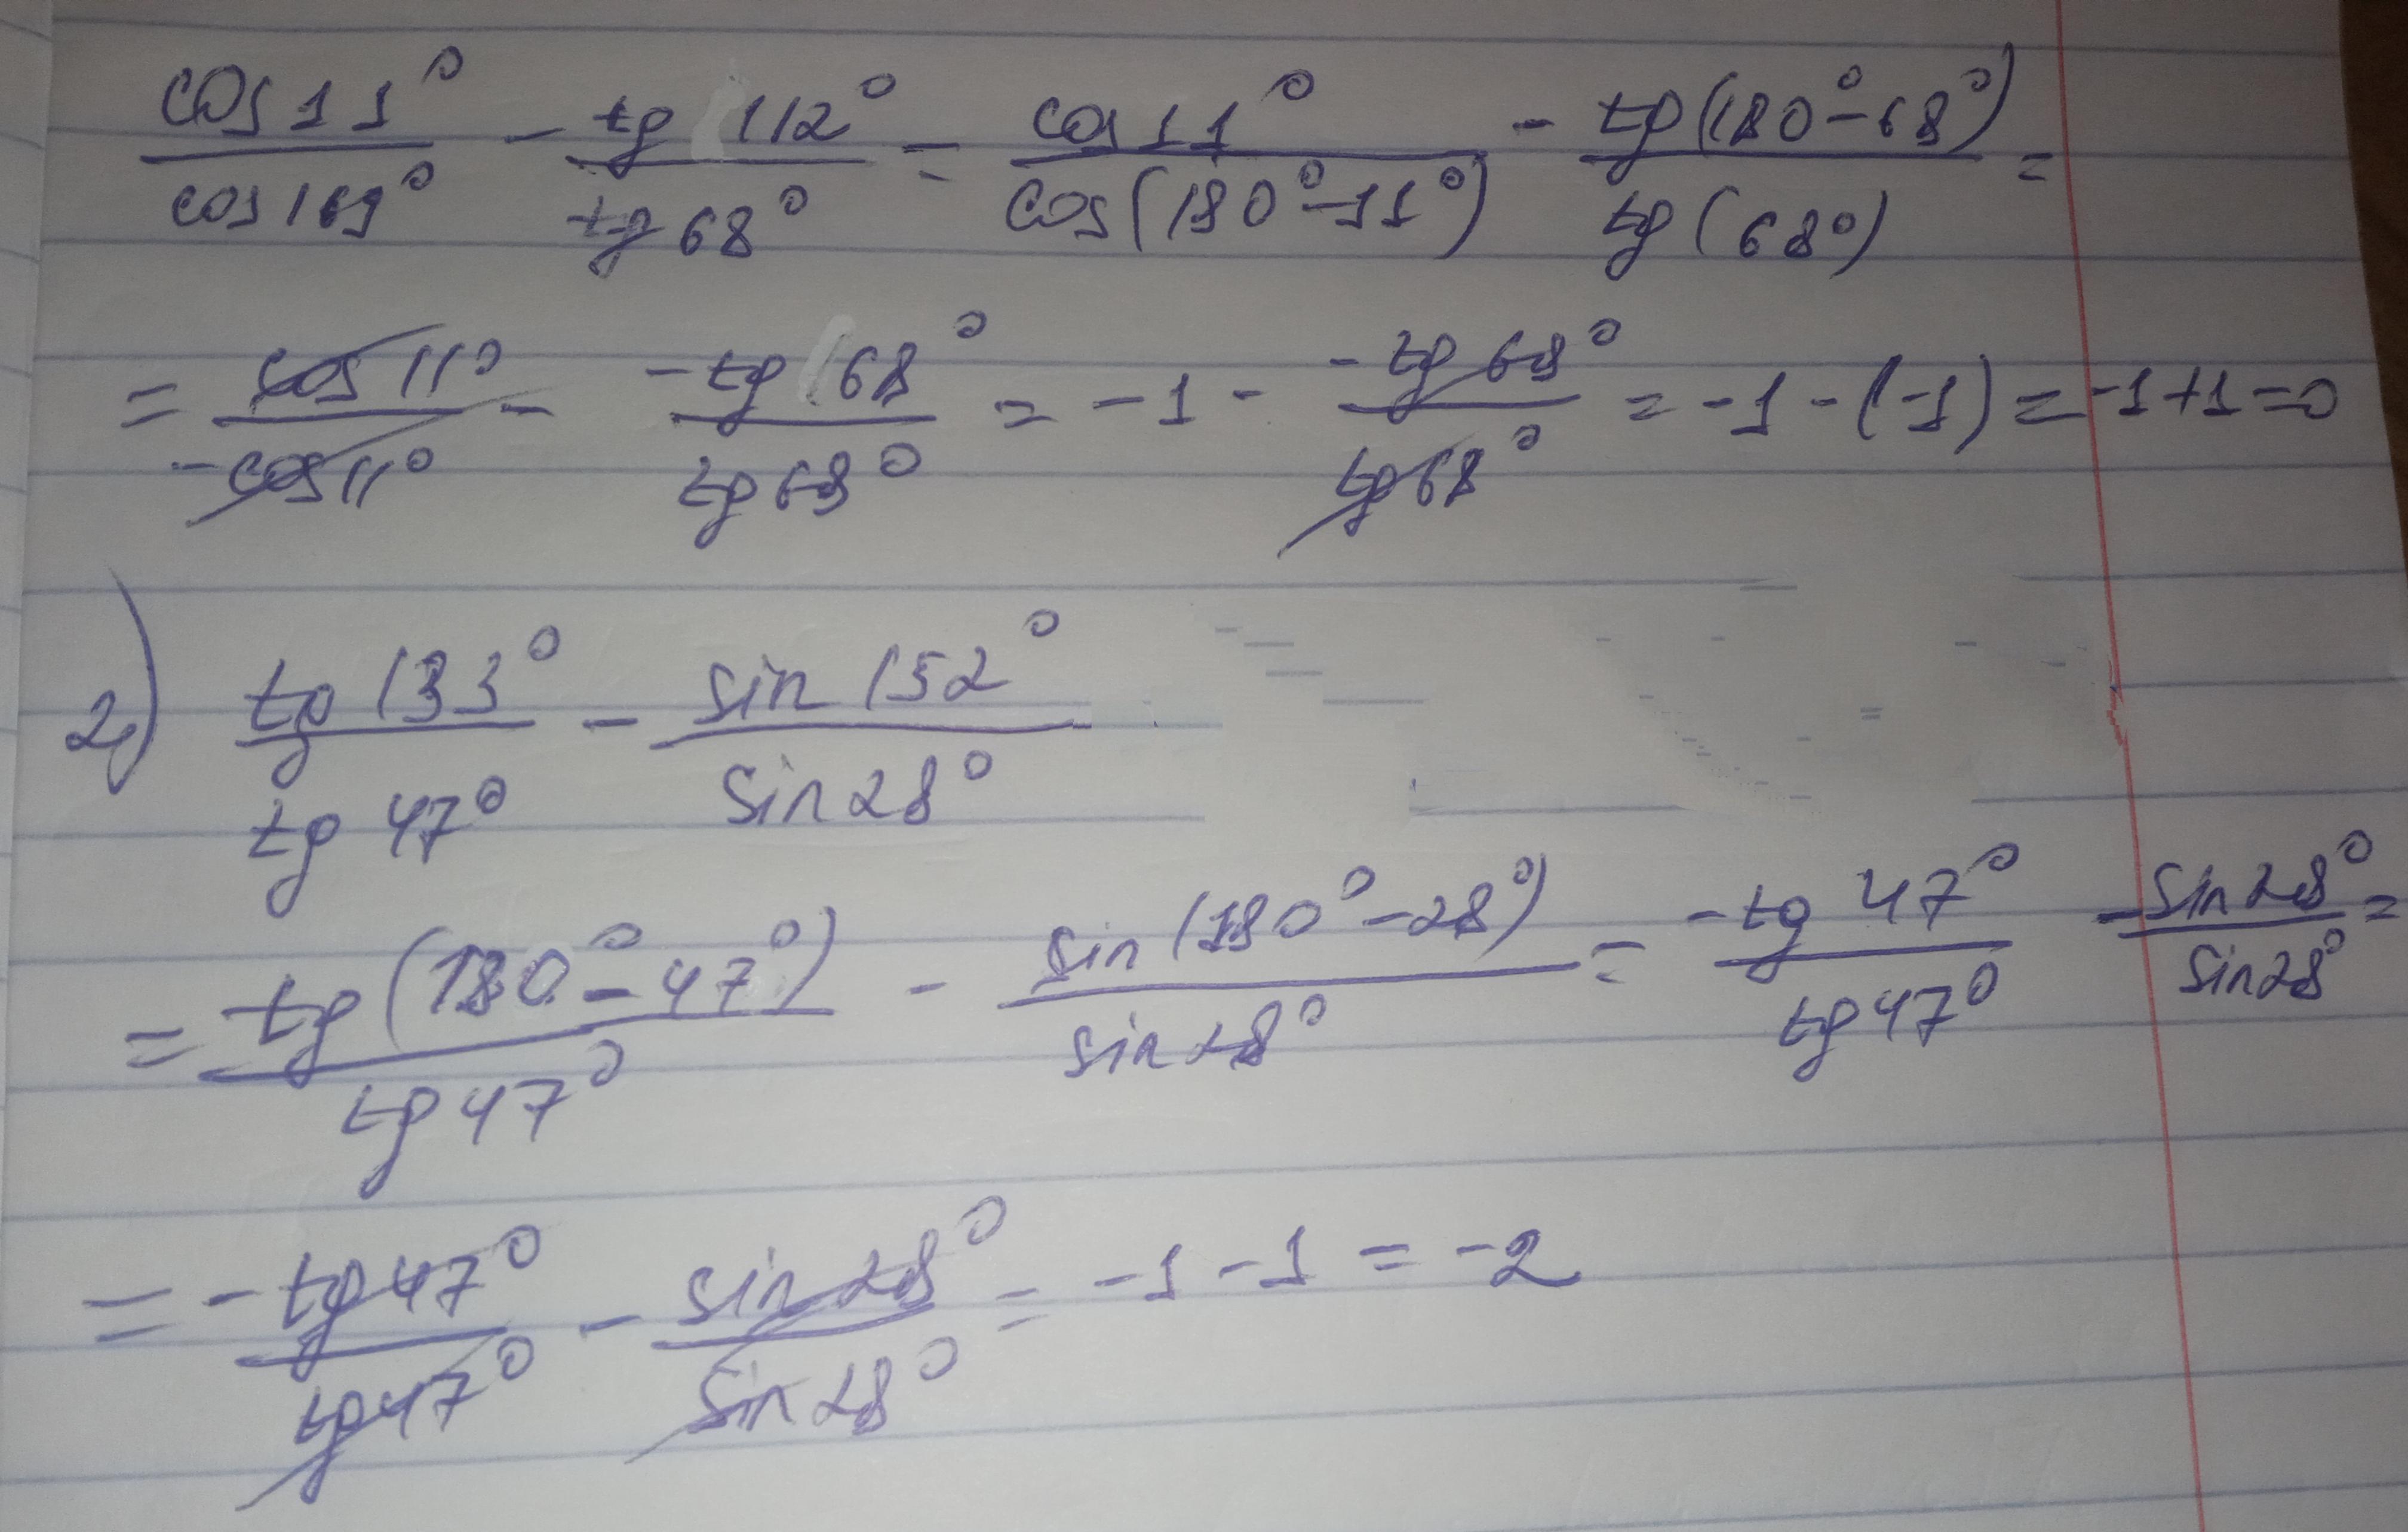 cos 11° / cos 169° - tg 112° / tg 68° = cos 11° / cos(180°-11°) - tg(180°-68°) / tg(68°) =
= cos 11° / -cos 11° - -tg 68° / tg 68° = -1 - -tg 68° / tg 68° = -1 - (-1) = -1+1=0
2) tg 133° / tg 47° - sin 152° / sin 28°
= tg(180°-47°) / tg 47° - sin(180°-28°) / sin 28° = -tg 47° / tg 47° - sin 28° / sin 28° =
= -tg 47° / tg 47° - sin 28° / sin 28° = -1 -1 = -2